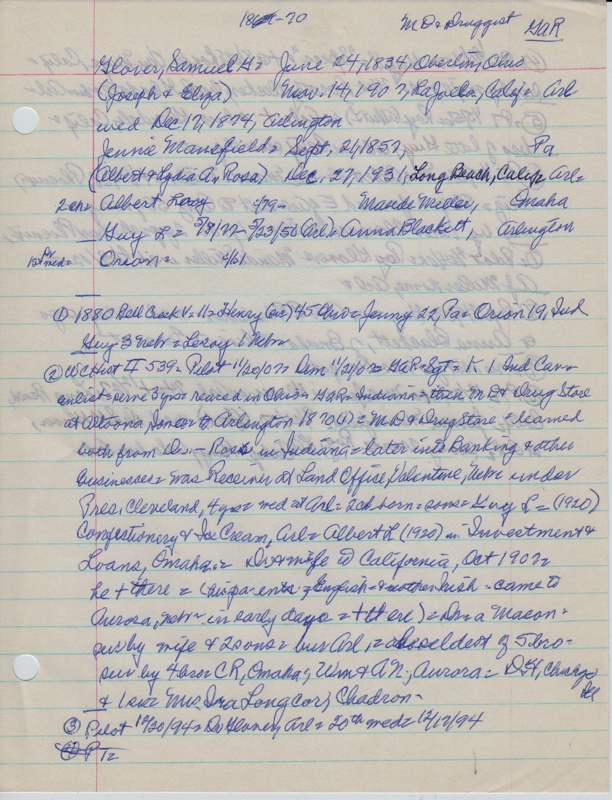 1869-70 MD & Druggist GaR
Glover, Samuel G = June 24, 1834, Oberlin, Ohio
(Joseph & Eliza) Nov. 14, 1907, LaJoela, Calif = Arl
wed Dec 17, 1874, Arlington
Jennie Mansefield = Sept, 21, 1857, Pa
(Albert & Lydia A. Rosa) Dec. 27, 1931, Long Beach, Calif Arl =
2ch = Albert Leroy 4/79 - Maude Miller, Omaha
Guy L = 5/8/77 - 5/23/50 (Arl) = Anna Blackett, Arlington
1st med = Orion = 1/61
① 1880 Bell Creek V = 11 = Henry (sic) 45 Ohio = Jenny 22, Pa = Orion 19, Ind
Guy 3 Nebr = Leroy 1 Nebr
② WCHist II 539 = Pilot 11/20/07 = Dem 11/21/07 = GaR = Sgt = K, Ind Cav =
enlist = serve 3 yrs = reared in Ohio = GaR = Indiana = then MD & Drug Store
at Altoona, Iowa = to Arlington 1870(1) = MD & Drug Store = learned
both from Dr. - Ross in Indiana = later into Banking & other
businesses = was Receiver at Land Office, Valentine, Nebr under
Pres. Cleveland, 4 yrs = wed at Arl = 2ch born = sons = Guy L = (1920)
Confectionery & Ice Cream, Arl = Albert L (1920) in Investment &
Loans, Omaha = Dr & wife to California, Oct 1907 =
he + there = (his parents = English = mother Irish - came to
Aurora, Nebr in early days = + there) = Dr = a Mason =
sur by wife & 2 sons = bur Arl, = eldest of 5 bro =
sur by 4 bro = CR, Omaha; Wm & A.N., Aurora = DH, Chicago Ill
& 1 sis = Mrs Ira Longcor, Chadron -
③ Pilot 12/20/94 = Dr Glover, Arl = 20th wed = 12/17/94
④ P T =